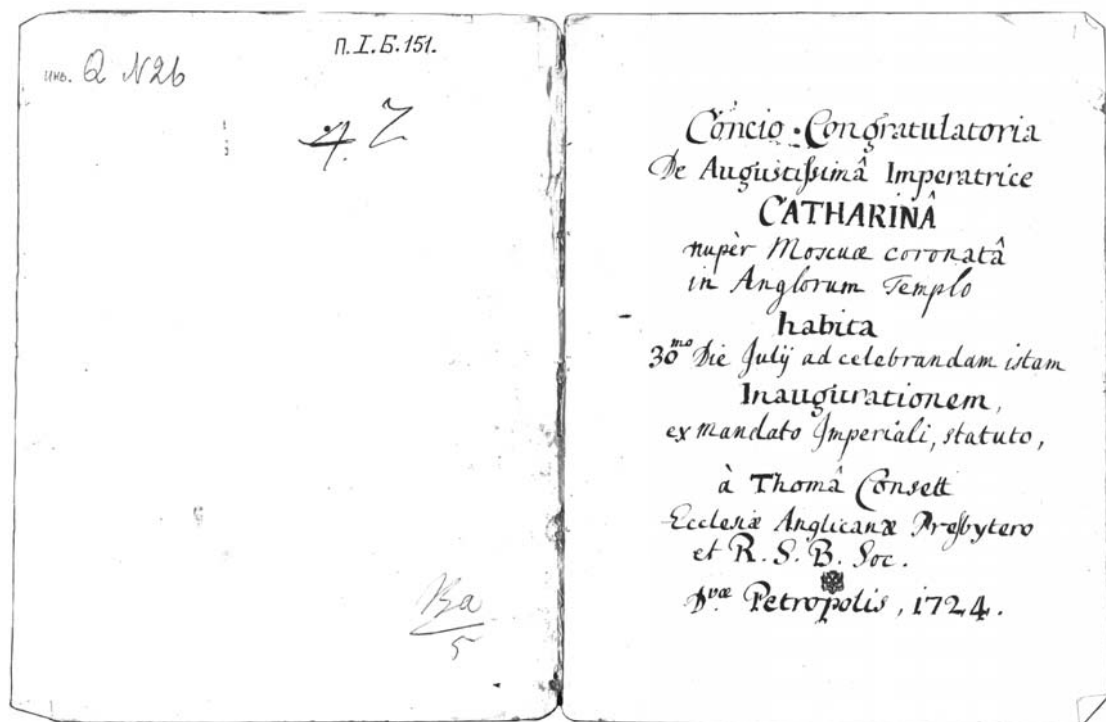 П.I.Б.151.
инв. Q N26
4. 7
Ba
5
Concio Congratulatoria
De Augustissimâ Imperatrice
CATHARINÂ
nupèr Moscuæ coronatâ
in Anglorum Templo
habita
30mo Die Julij ad celebrandam istam
Inaugurationem,
ex mandato Imperiali, statuto,
à Thomâ Consett
Ecclesiæ Anglicanæ Presbytero
et R. S. B. Soc.
Petropolis, 1724.